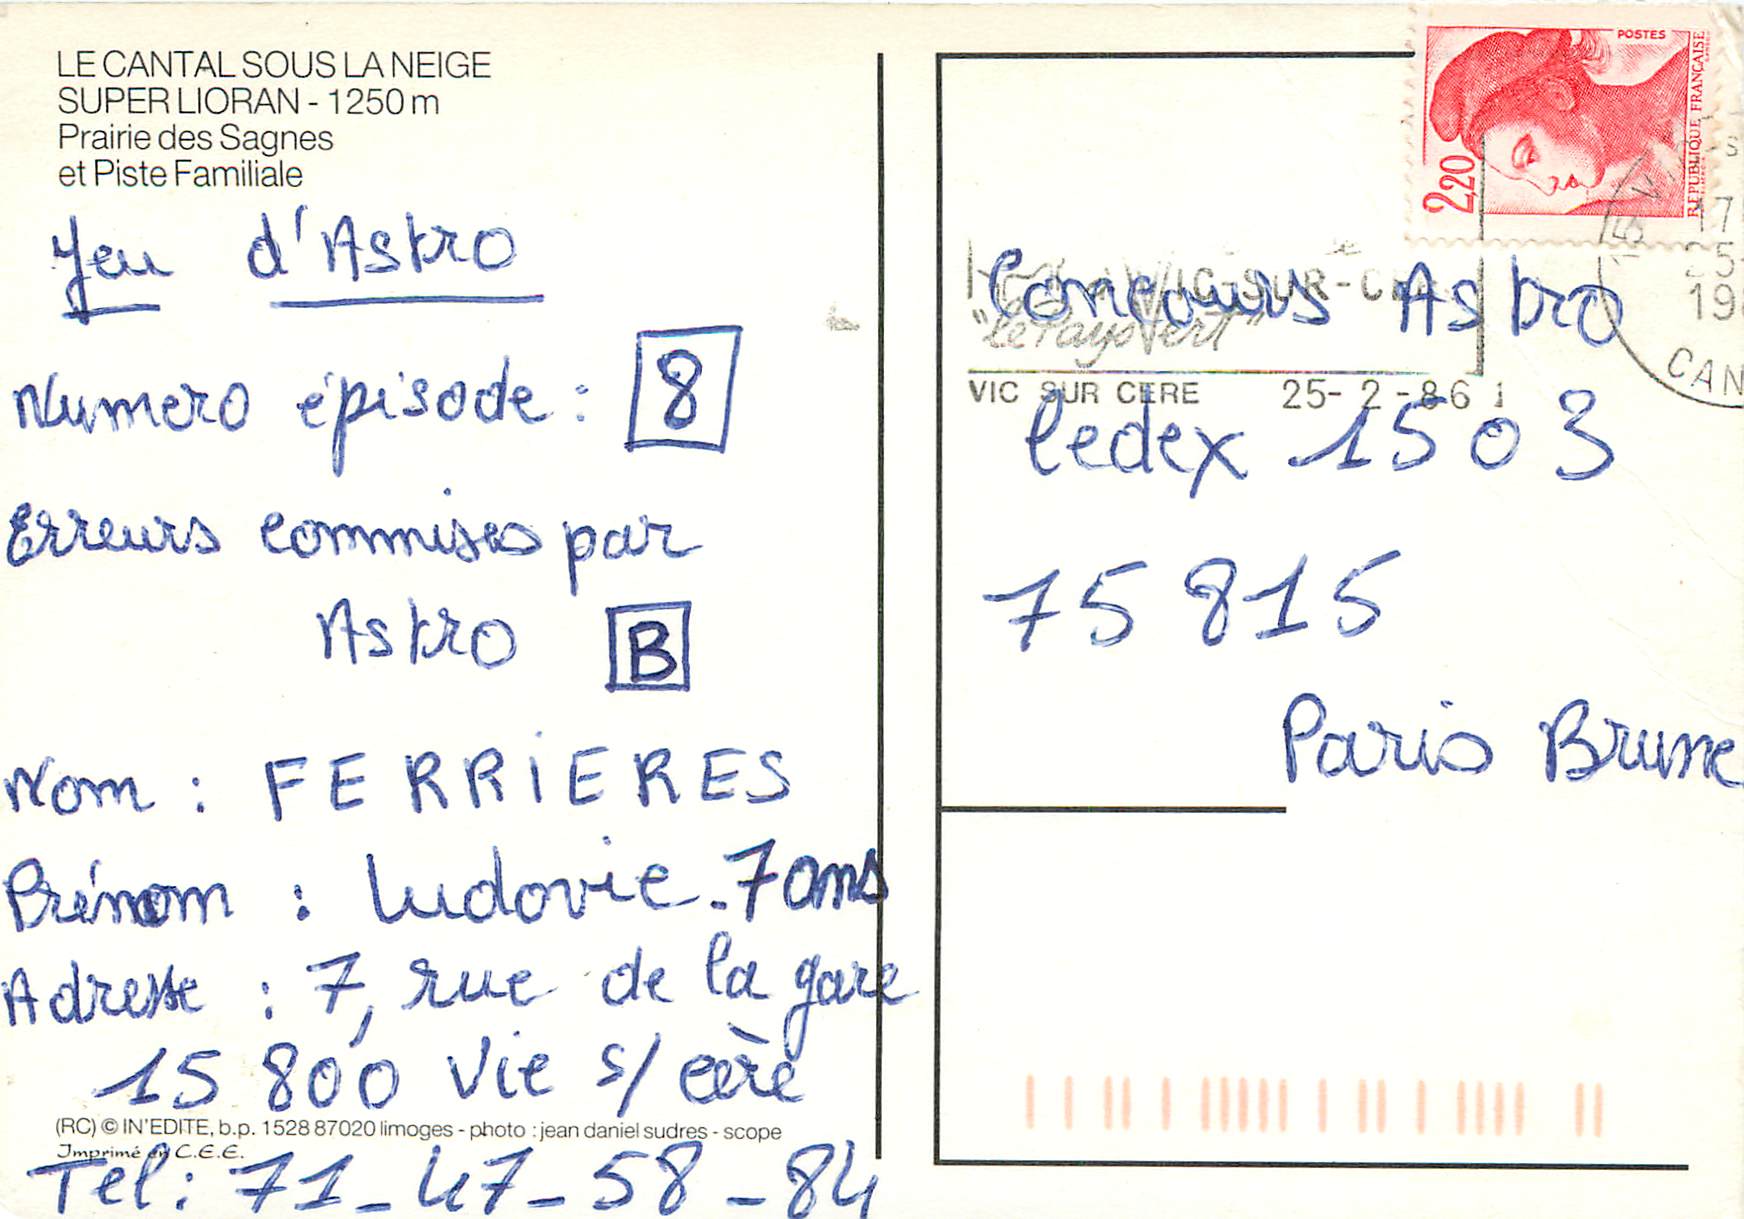 LE CANTAL SOUS LA NEIGE
SUPER LIORAN - 1250 m
Prairie des Sagnes
et Piste Familiale
Jeu d'Astro
Numero épisode : 8
Erreurs commises par
Astro B
Nom : FERRIERES
Prénom : Ludovic - 7 ans
Adresse : 7, rue de la gare
15 800 Vic s/ cère
(RC) © IN'EDITE, b.p. 1528 87020 limoges - photo : jean daniel sudres - scope
Imprimé en C.E.E.
Tel : 71 - 47 - 58 - 84
POSTES
REPUBLIQUE FRANÇAISE
2,20
VIC-SUR-C
"Le Pays Vert"
VIC SUR CERE 25- 2 -86
CAN
Concours Astro
Cedex 1503
75 815
Paris Brune